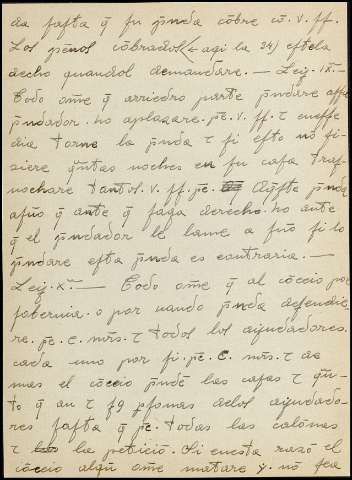 da fasta q̄ su p̄nda cōbre ō. v. ff.
Los pēnos cōbrados (← aqi la 34) estela
decho quandol demandare. — Ley. IXª. —
Todo ome q̄ arriedro parte p̄ndare
p̄ndador. ho aplazare. pē. v. ff. τ
dia torne la p̄nda τ si esto no fi-
ziere q̄ntas noches en su casa tras-
nochare tantos. v. ff. pē. p̄nda
q̄ ante q̄ faga derecho. ho ante
q̄ el p̄ndador le lame a fuo si lo
p̄ndare esta p̄nda es contraria. —
Ley. Xª. — Todo ome q̄ al cōceio por
soberuia. o por uando p̄nda defendie-
re. pē. C. mr̄s. τ todos los aiudadores.
cada uno por si. pē. C. mr̄s. τ de
mas el cōceio p̄nde las casas τ q̄n-
to q̄ an τ psonas delos aiudado-
res fasta q̄ pē. todas las calonas
τ la peticiō. Si enesta razō el
cōceio algū ome matare y. nō sea